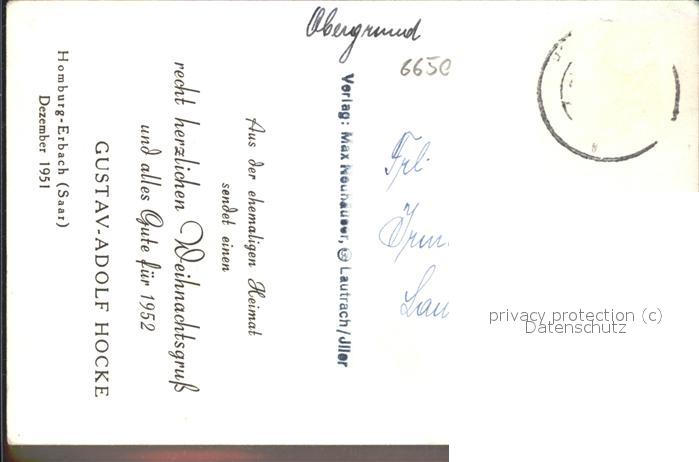 Obergrund
Aus der ehemaligen Heimat
sendet einen
recht herzlichen Weihnachtsgruß
und alles Gute für 1952
GUSTAV-ADOLF HOCKE
Homburg-Erbach (Saar)
Dezember 1951
Verlag: Max Neuhäuser, Lautrach/Jller
Frl.
privacy protection (c)
Datenschutz